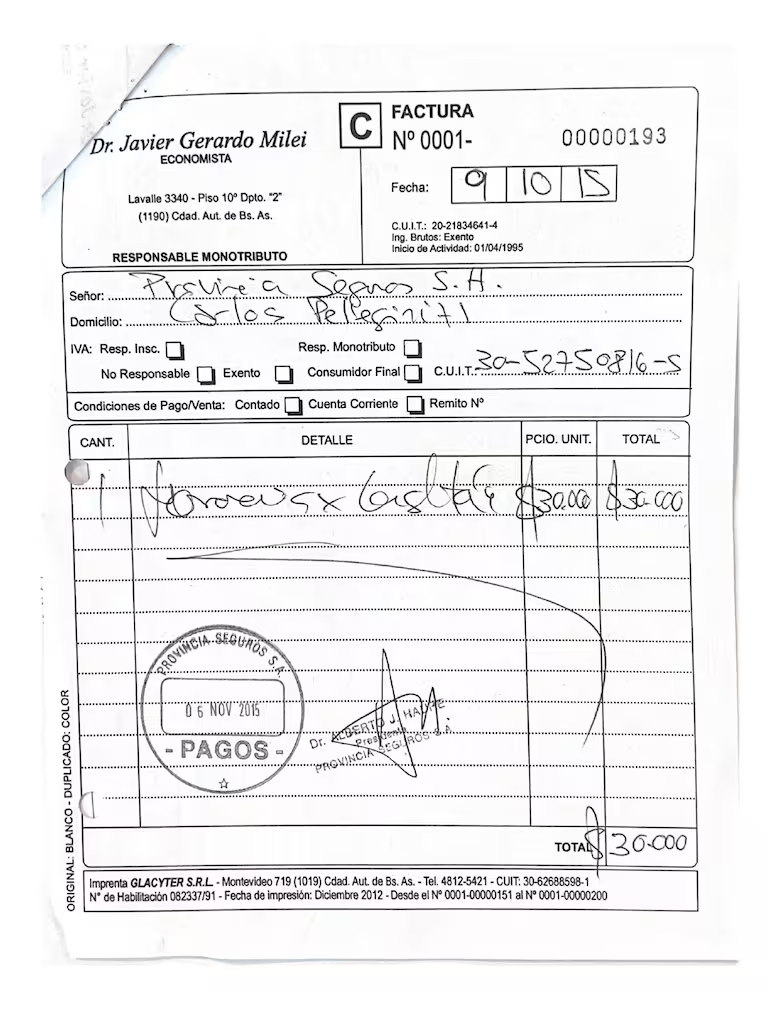 Dr. Javier Gerardo Milei
ECONOMISTA
Lavalle 3340 - Piso 10º Dpto. "2"
(1190) Cdad. Aut. de Bs. As.
RESPONSABLE MONOTRIBUTO
C
FACTURA
Nº 0001- 00000193
Fecha: 9 10 15
C.U.I.T.: 20-21834641-4
Ing. Brutos: Exento
Inicio de Actividad: 01/04/1995
Señor: Provincia Seguros S.A.
Domicilio: Carlos Pellegrini 71
IVA: Resp. Insc. Resp. Monotributo
No Responsable Exento Consumidor Final C.U.I.T. 30-52750816-5
Condiciones de Pago/Venta: Contado Cuenta Corriente Remito Nº
CANT. DETALLE PCIO. UNIT. TOTAL
1 $30.000 $30.000
PROVINCIA SEGUROS S.A.
06 NOV 2015
- PAGOS -
Dr. ALBERTO J.
Presidente
PROVINCIA SEGUROS S.A.
TOTAL $30.000
ORIGINAL: BLANCO - DUPLICADO: COLOR
Imprenta GLACYTER S.R.L. - Montevideo 719 (1019) Cdad. Aut. de Bs. As. - Tel. 4812-5421 - CUIT: 30-62688598-1
N° de Habilitación 082337/91 - Fecha de impresión: Diciembre 2012 - Desde el Nº 0001-00000151 al Nº 0001-00000200